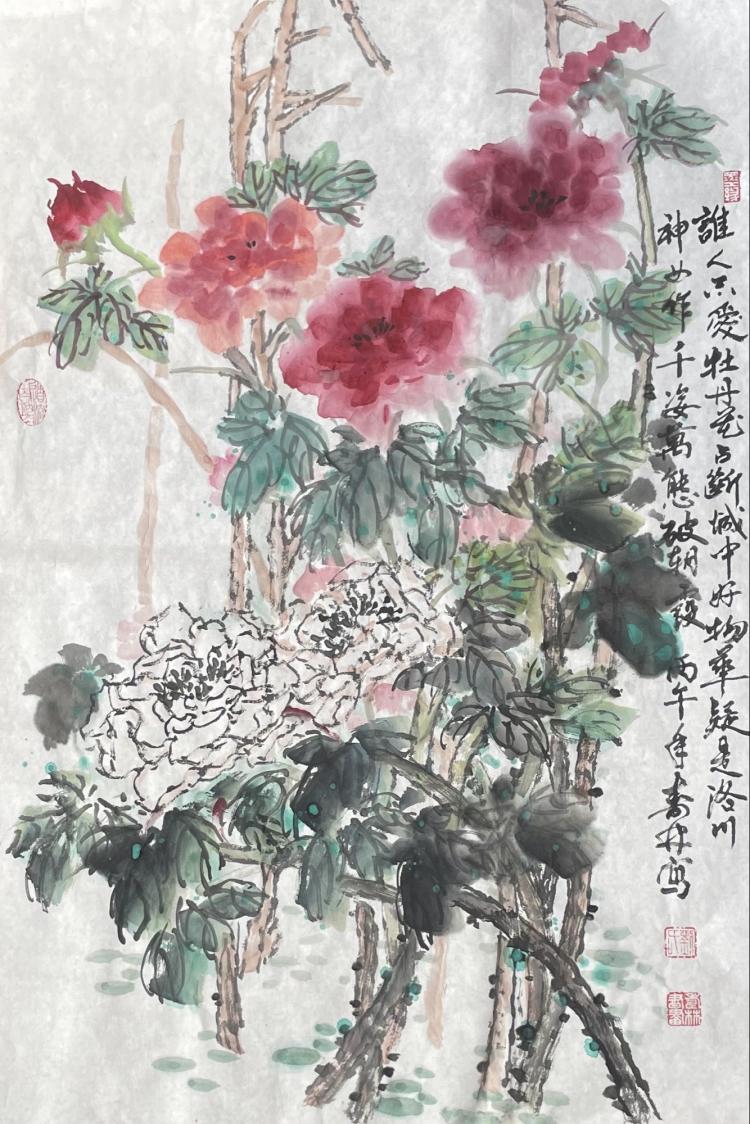 誰人不愛牡丹花占斷城中好物華疑是洛川
神女作千姿萬態破朝霞 丙午年壽林寫
劉氏
壽林書畫